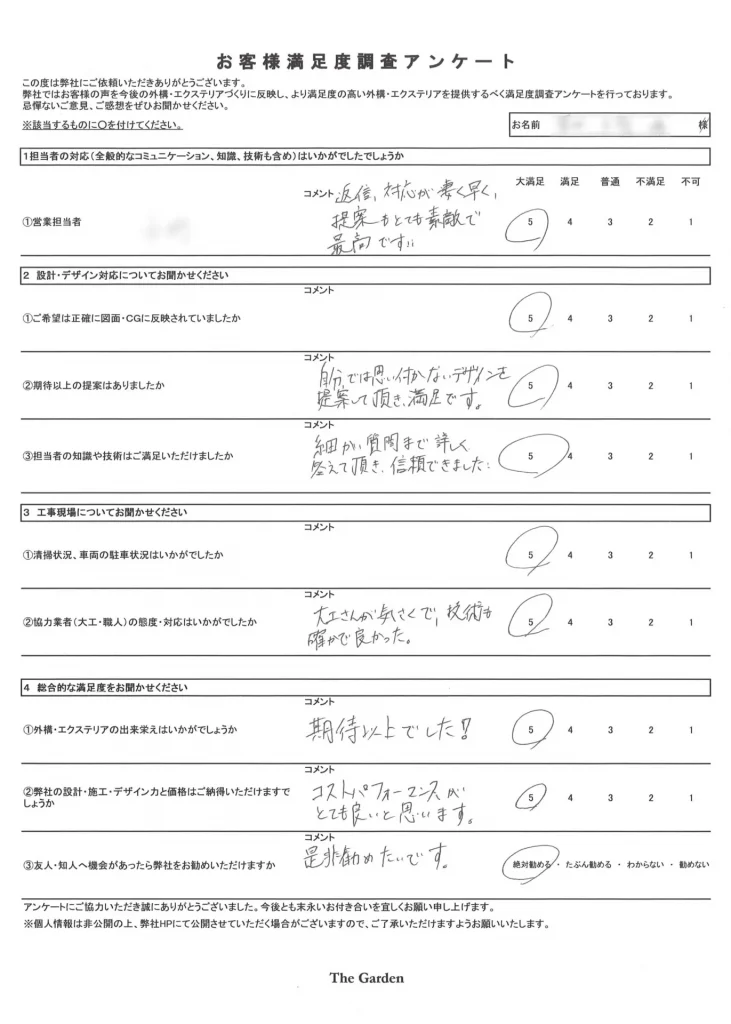 お客様満足度調査アンケート
この度は弊社にご依頼いただきありがとうございます。
弊社ではお客様の声を今後の外構・エクステリアづくりに反映し、より満足度の高い外構・エクステリアを提供するべく満足度調査アンケートを行っております。
忌憚ないご意見、ご感想をぜひお聞かせください。
※該当するものに〇を付けてください。
お名前 様
1担当者の対応(全般的なコミュニケーション、知識、技術も含め)はいかがでしたでしょうか
大満足 満足 普通 不満足 不可
①営業担当者
コメント 返信、対応が凄く早く、
提案もとても素敵で
最高です!!
5 4 3 2 1
2 設計・デザイン対応についてお聞かせください
①ご希望は正確に図面・CGに反映されていましたか
コメント
5 4 3 2 1
②期待以上の提案はありましたか
コメント
自分では思い付かないデザインを
提案して頂き、満足です。
5 4 3 2 1
③担当者の知識や技術はご満足いただけましたか
コメント
細かい質問まで詳しく
答えて頂き、信頼できました
5 4 3 2 1
3 工事現場についてお聞かせください
①清掃状況、車両の駐車状況はいかがでしたか
コメント
5 4 3 2 1
②協力業者(大工・職人)の態度・対応はいかがでしたか
コメント
大工さんが気さくで、技術も
確かで良かった。
5 4 3 2 1
4 総合的な満足度をお聞かせください
①外構・エクステリアの出来栄えはいかがでしょうか
コメント
期待以上でした!
5 4 3 2 1
②弊社の設計・施工・デザイン力と価格はご納得いただけますで
しょうか
コメント
コストパフォーマンスが
とても良いと思います。
5 4 3 2 1
③友人・知人へ機会があったら弊社をお勧めいただけますか
コメント
是非勧めたいです。
絶対勧める・たぶん勧める・わからない・勧めない
アンケートにご協力いただき誠にありがとうございました。今後とも末永いお付き合いを宜しくお願い申し上げます。
※個人情報は非公開の上、弊社HPにて公開させていただく場合がございますので、ご了承いただけますようお願いいたします。
The Garden